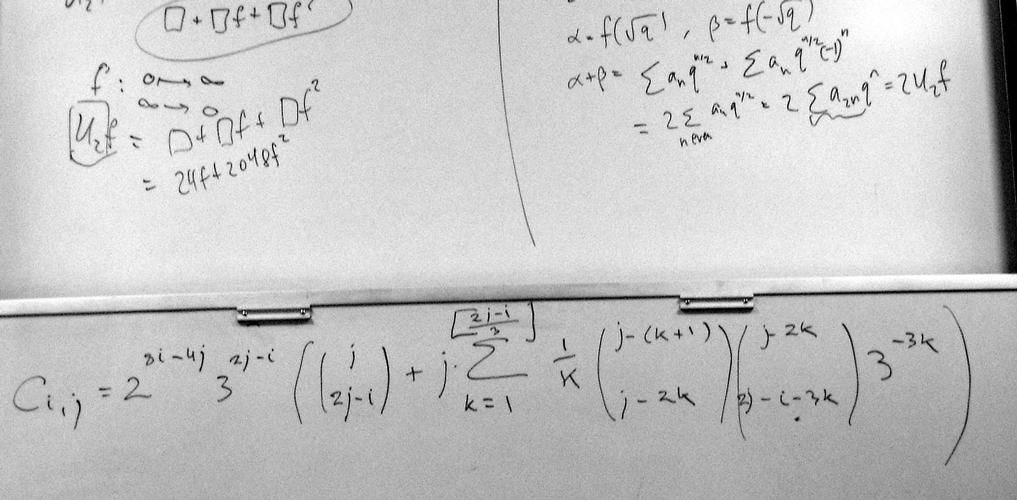 □ + □f + □f²
f : 0 → ∞
∞ → 0
U₂f = □ + □f + □f²
= 24f + 2048f²
α = f(√q), β = f(-√q)
α+β = ∑ aₙ q^{n/2} + ∑ aₙ q^{n/2} (-1)ⁿ
= 2 ∑_{n even} aₙ q^{n/2} = 2 ∑ a₂ₙ qⁿ = 2U₂f
C_{i,j} = 2^{8i-4j} 3^{2j-i} ( \binom{j}{2j-i} + j · ∑_{k=1}^{[\frac{2j-i}{3}]} \frac{1}{k} \binom{j-(k+1)}{j-2k} \binom{j-2k}{2j-i-3k} 3^{-3k} )